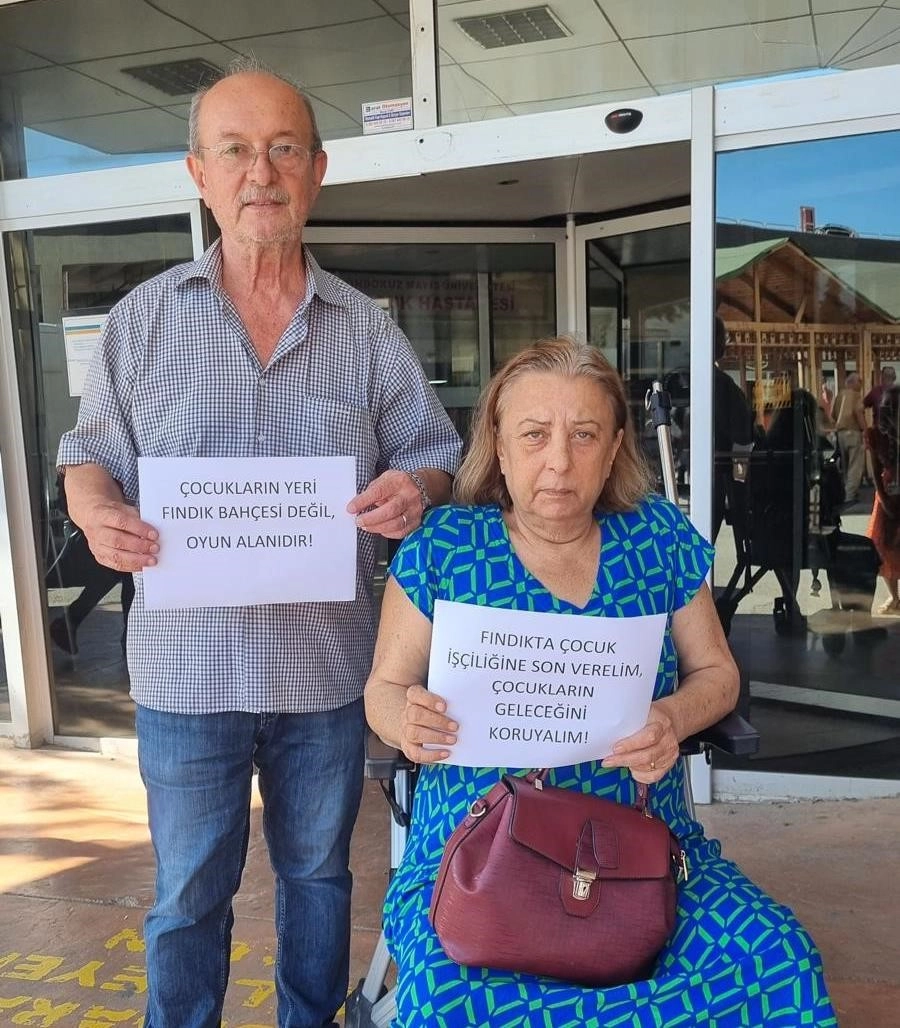 ÇOCUKLARIN YERİ
FINDIK BAHÇESİ DEĞİL,
OYUN ALANIDIR!
FINDIKTA ÇOCUK
İŞÇİLİĞİNE SON VERELİM,
ÇOCUKLARIN
GELECEĞİNİ
KORUYALIM!
MAYIS ÜNİVERSİTESİ
HASTANESİ